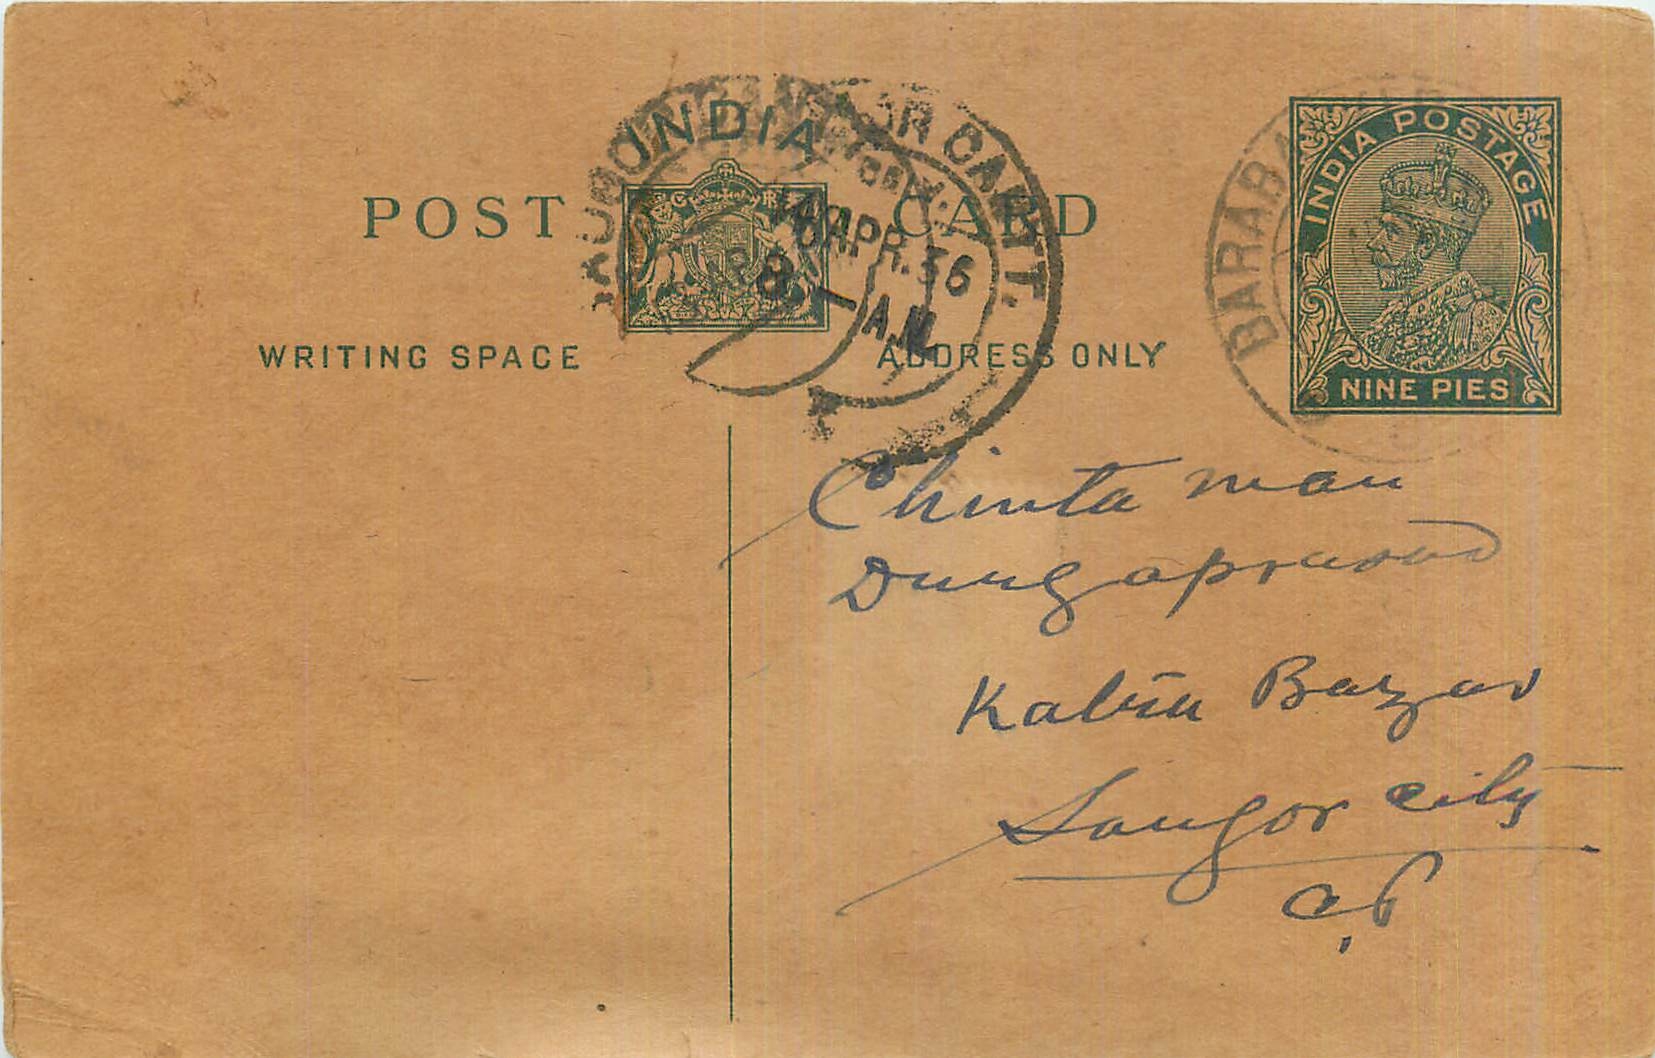 INDIA
POST CARD
WRITING SPACE
ADDRESS ONLY
INDIA POSTAGE
NINE PIES
BARABA
SAUGOR CANTT.
APR.36
8-A.M.
Chinta man
Durgaprasad
Katra Bazar
Saugor City
C.P